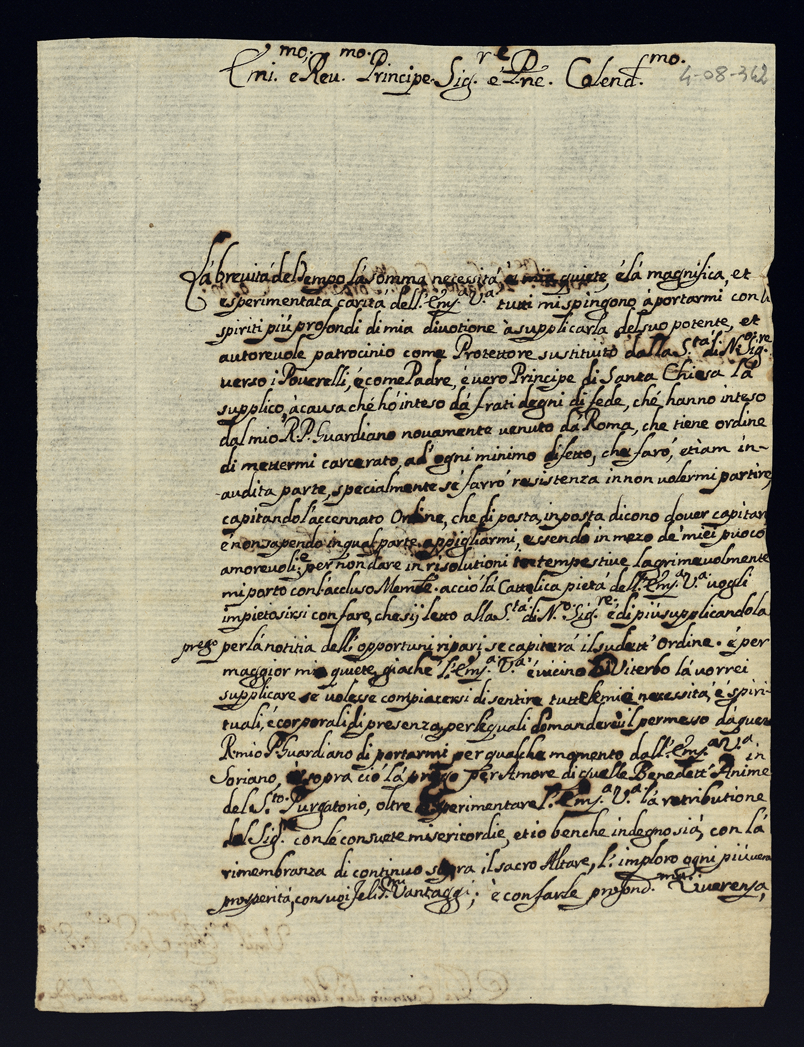 Emi.mo e Reu.mo Principe Sig.re é P.ne Colend.mo
4-08-342
Lá breuitá del Tempo, lá somma necessitá, é mia quiete, é lá magnifica, et
esperimentata caritá dell'Em.a V.a tutti mi spingono á portarmi con li
spiriti piú profondi di mia diuotione á supplicarla del suo potente, et
autoreuole patrocinio come Protettore sustituito dalla S.tá di N.ro Sig.re
uerso i Pouerelli, é come Padre, é uero Principe di Santa Chiesa Lá
supplico, á causa ché hó inteso dá frati degni di fede, ché hanno inteso
dal mio R.P. Guardiano nouamente uenuto dá Roma, che tiene ordine
di mettermi carcerato, ad' ogni minimo difetto, che faró, etiam in-
audita parte, specialmente sé farró resistenza in non uolermi partire,
capitando l'accennato Ordine, che di posta, in posta dicono douer capitare
é non sapendo in qual parte appigliarmi, essendo in mezo de miei puoco
amoreuoli, é per non dare in risolutioni intempestiue lagrimeuolmente
mi porto con l'accluso Memle. acció lá Cattolica pietá dell'Em.a V.a uogli
impietosirsi con fare, che sij letto alla S.tá di N.ro Sig.ré é di piú supplicandola
prego per lá notitia dell' opportuni ripari, se capiterá il sudett' Ordine. é per
maggior mia quiete, giache l'Em.a V.a é uicino á Viterbo lá uorrei
supplicare se uolesse compiacersi di sentire tutte le mie necessitá, é spiri-
tuali, é corporali di presenza, per le quali domanderei il permesso dá questo
R. mio P. Guardiano di portarmi per qualche momento dall'Em.a V.a in
Soriano, é sopra ció lá prego per Amore di quelle Benedett' Anime
del S.to Purgatorio, oltre esperimentare l'Em.a V.a lá retributione
del Sig.re con lé consuete misericordie, et io benche indegno siá, con lá
rimembranza di continuo sopra il sacro Altare, l'imploro ogni piú uera
prosperitá, con suoi felic.mi Vantaggi; é con farle profond.ma Riuerenza,